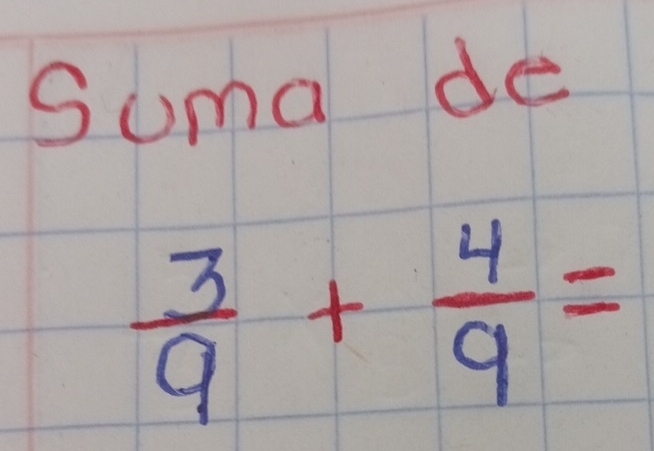 Suma de
3/9 + 4/9 =